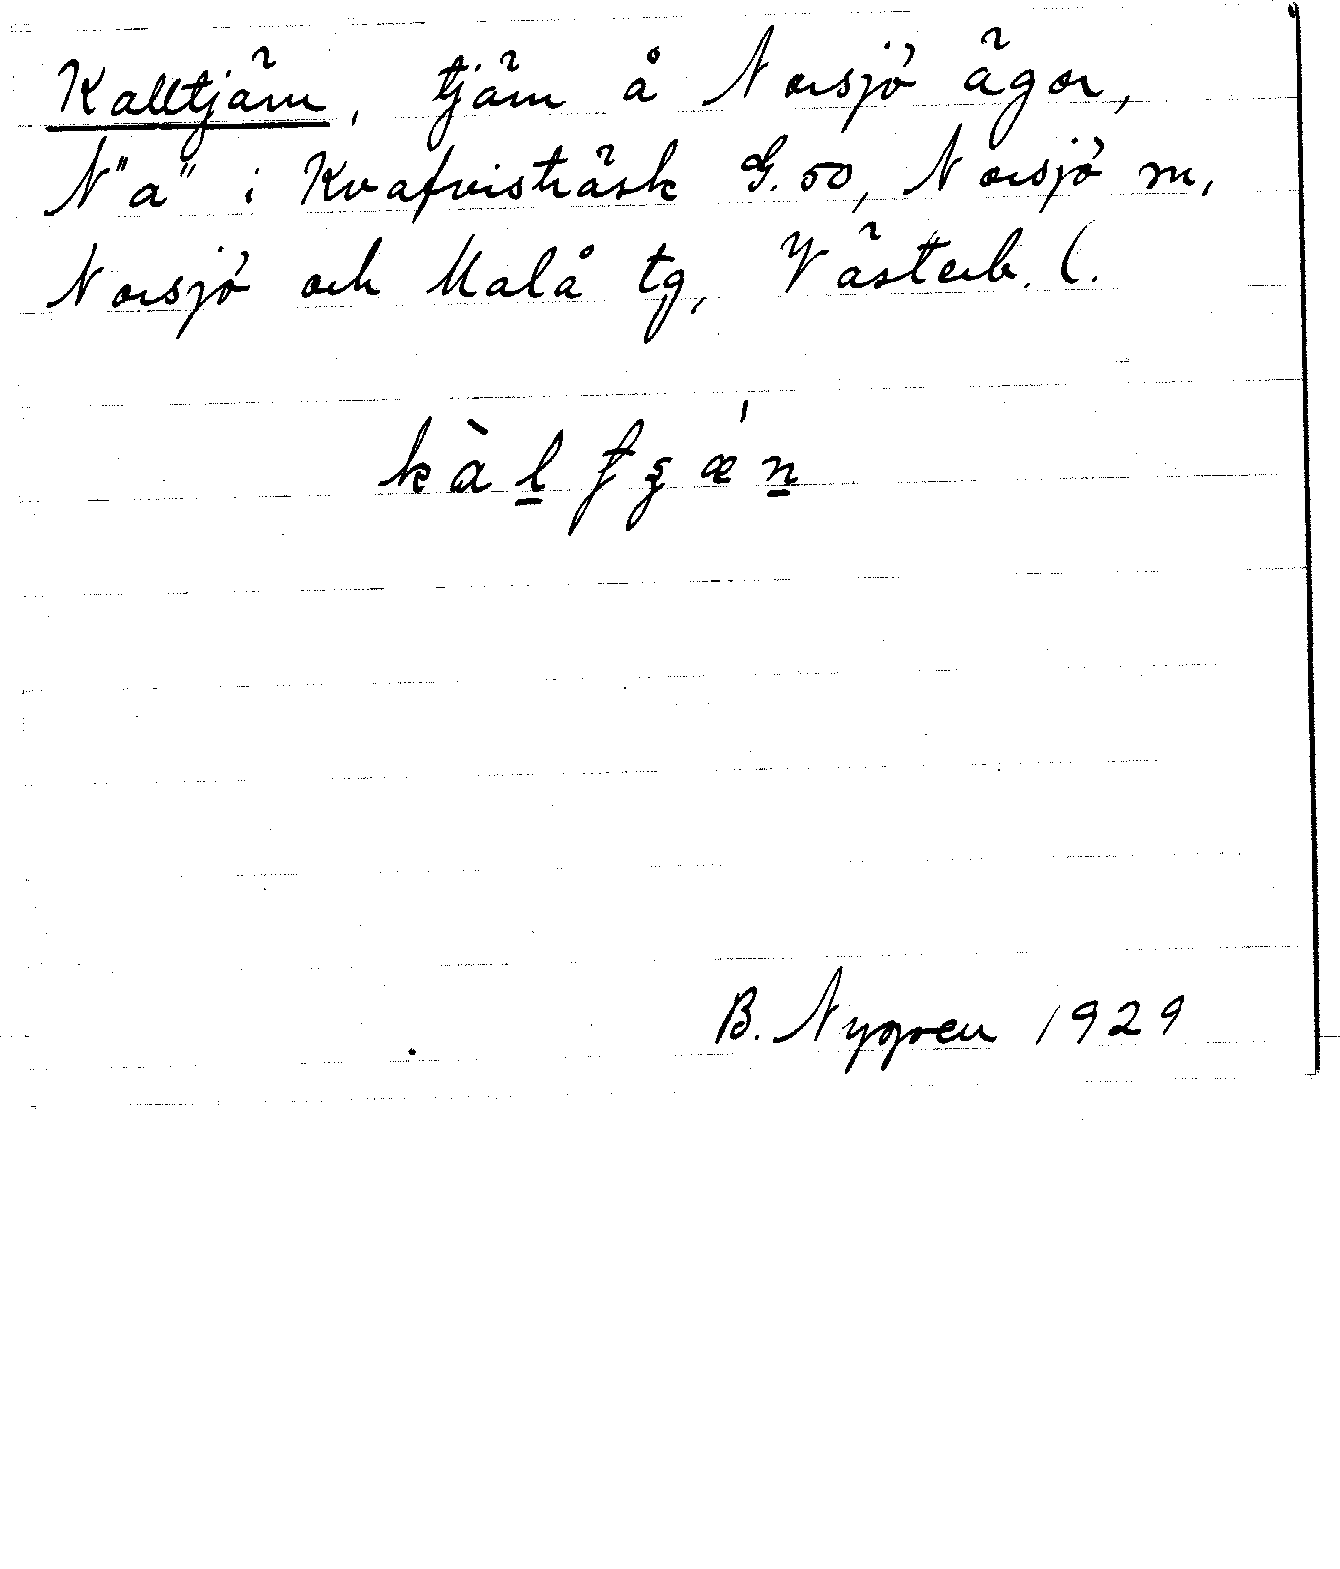 Kalltjärn, tjärn å Norsjö ägor,
N "a" i Kvafvisträsk G. 50, Norsjö sn,
Norsjö och Malå tg, Västerb. l.
kàl̠ ʈȿǽn̠
B. Nygren 1929